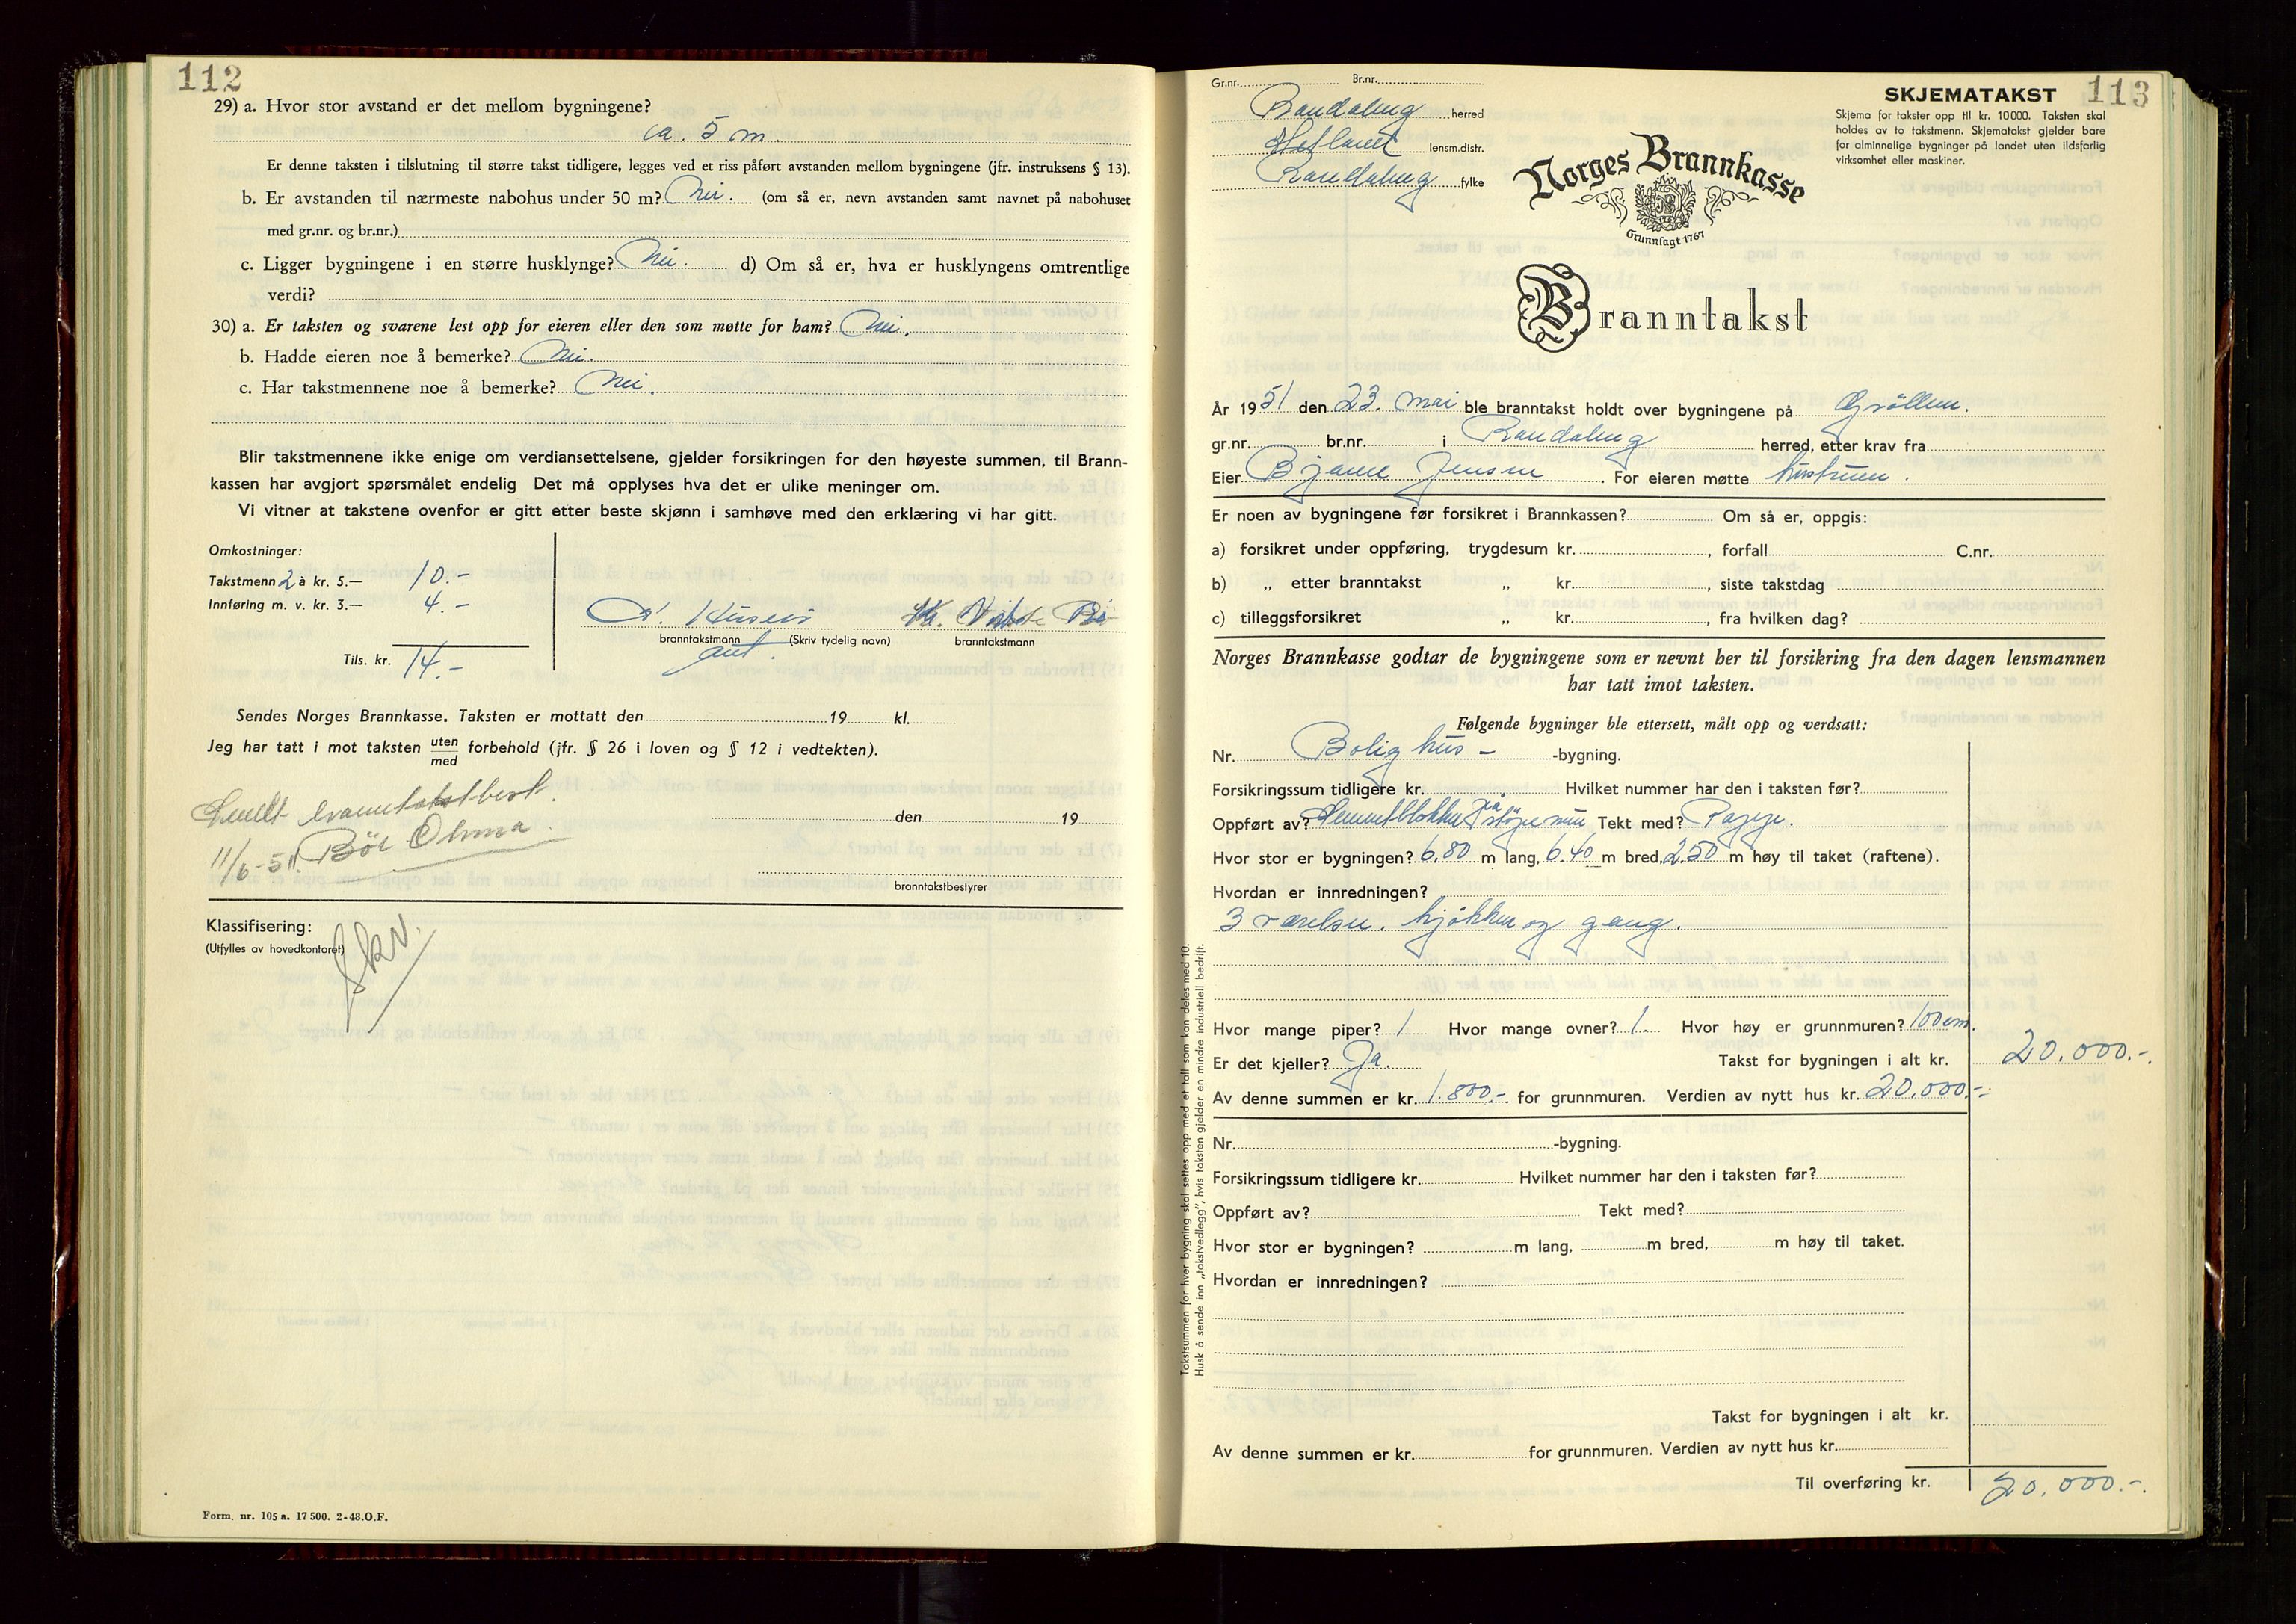 112
29) a. Hvor stor avstand er det mellom bygningene?
ca. 5 m.
Er denne taksten i tilslutning til større takst tidligere, legges ved et riss påført avstanden mellom bygningene (jfr. instruksens § 13).
b. Er avstanden til nærmeste nabohus under 50 m? Nei. (om så er, nevn avstanden samt navnet på nabohuset
med gr.nr. og br.nr.)
c. Ligger bygningene i en større husklynge? Nei. d) Om så er, hva er husklyngens omtrentlige
verdi?
30) a. Er taksten og svarene lest opp for eieren eller den som møtte for ham? Nei.
b. Hadde eieren noe å bemerke? Nei.
c. Har takstmennene noe å bemerke? Nei.
Blir takstmennene ikke enige om verdiansettelsene, gjelder forsikringen for den høyeste summen, til Brann-
kassen har avgjort spørsmålet endelig Det må opplyses hva det er ulike meninger om.
Vi vitner at takstene ovenfor er gitt etter beste skjønn i samhøve med den erklæring vi har gitt.
Omkostninger:
Takstmenn 2 à kr. 5.— 10.-
Innføring m. v. kr. 3.— 4.-
Tils. kr. 14.-
branntakstmann (Skriv tydelig navn) branntakstmann
Sendes Norges Brannkasse. Taksten er mottatt den 19 kl.
Jeg har tatt i mot taksten uten forbehold (jfr. § 26 i loven og § 12 i vedtekten).
med
Sendt branntakstbest.
11/6-51. Bøe
den 19
branntakstbestyrer
Klassifisering:
(Utfylles av hovedkontoret)
Form. nr. 105 a. 17 500. 2-48.O.F.
Gr.nr. Br.nr.
SKJEMATAKST 113
Skjema for takster opp til kr. 10000. Taksten skal
holdes av to takstmenn. Skjematakst gjelder bare
for alminnelige bygninger på landet uten ildsfarlig
virksomhet eller maskiner.
Randaberg herred
Hetland lensm.distr.
Randaberg fylke
Norges Brannkasse
Grunnlagt 1767
Branntakst
År 1951 den 23. mai ble branntakst holdt over bygningene på Grödem.
gr.nr. br.nr. i Randaberg herred, etter krav fra
Eier Bjarne Jensen. For eieren møtte hustruen.
Er noen av bygningene før forsikret i Brannkassen? Om så er, oppgis:
a) forsikret under oppføring, trygdesum kr. , forfall C.nr.
b) „ etter branntakst „ kr. , siste takstdag
c) tilleggsforsikret „ kr. , fra hvilken dag?
Norges Brannkasse godtar de bygningene som er nevnt her til forsikring fra den dagen lensmannen
har tatt imot taksten.
Følgende bygninger ble ettersett, målt opp og verdsatt:
Nr. Bolighus - -bygning.
Forsikringssum tidligere kr. Hvilket nummer har den i taksten før?
Oppført av? Sementblokker på støpe mur Tekt med? Papp.
Hvor stor er bygningen? 6.80 m lang, 6.40 m bred, 2.50 m høy til taket (raftene).
Hvordan er innredningen?
3 værelser. kjøkken og gang.
Hvor mange piper? 1 Hvor mange ovner? 1. Hvor høy er grunnmuren? 100 cm.
Er det kjeller? Ja. Takst for bygningen i alt kr. 20.000.-
Av denne summen er kr. 1.800.- for grunnmuren. Verdien av nytt hus kr. 20.000.-
Nr. -bygning.
Forsikringssum tidligere kr. Hvilket nummer har den i taksten før?
Oppført av? Tekt med?
Hvor stor er bygningen? m lang, m bred, m høy til taket.
Hvordan er innredningen?
Takst for bygningen i alt kr.
Av denne summen er kr. for grunnmuren. Verdien av nytt hus kr.
Til overføring kr. 20.000.-
Takstsummen for hver bygning skal settes opp med et tall som kan deles med 10.
Husk å sende inn „takstvedlegg", hvis taksten gjelder en mindre industriell bedrift.